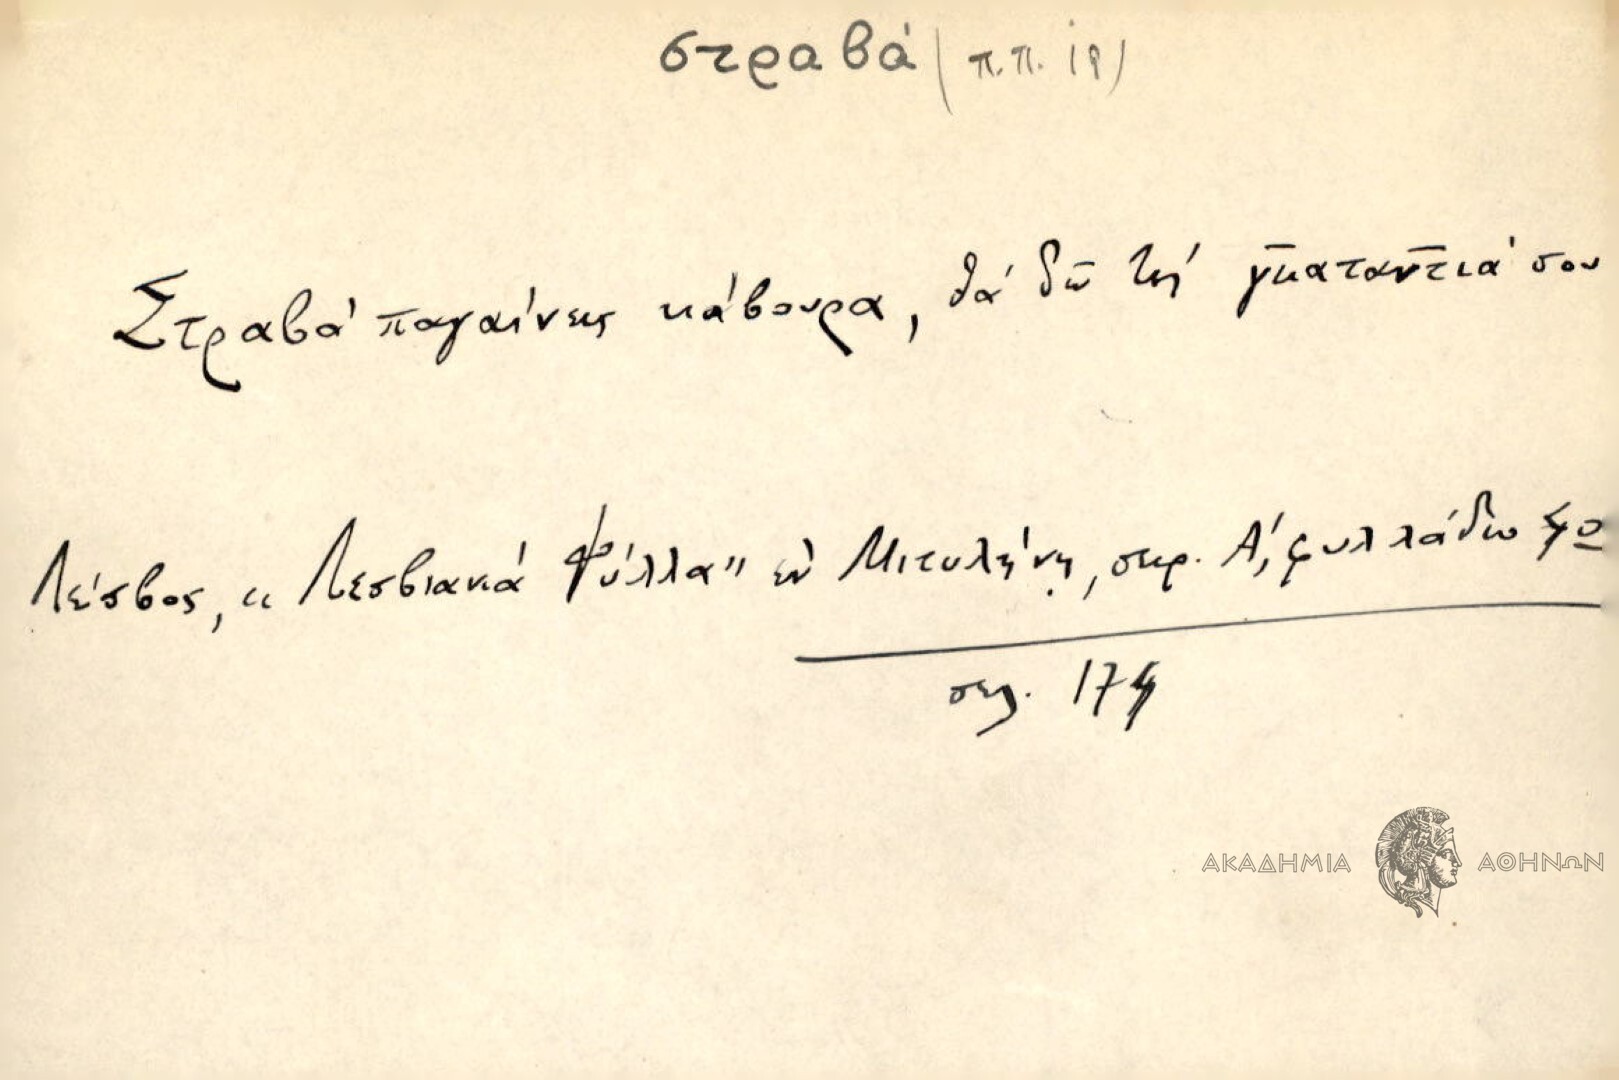 στραβά (π.π. 19)
Στραβά παγαίνεις κάβουρα, θά δῶ τή γ̄κατᾱντιά σου
Λέσβος, "Λεσβιακά Φύλλα" ἐν Μιτυλήνῃ, σειρ. Α', φυλλάδιο 4ο
σελ. 174
ΑΚΑΔΗΜΙΑ ΑΘΗΝΩΝ